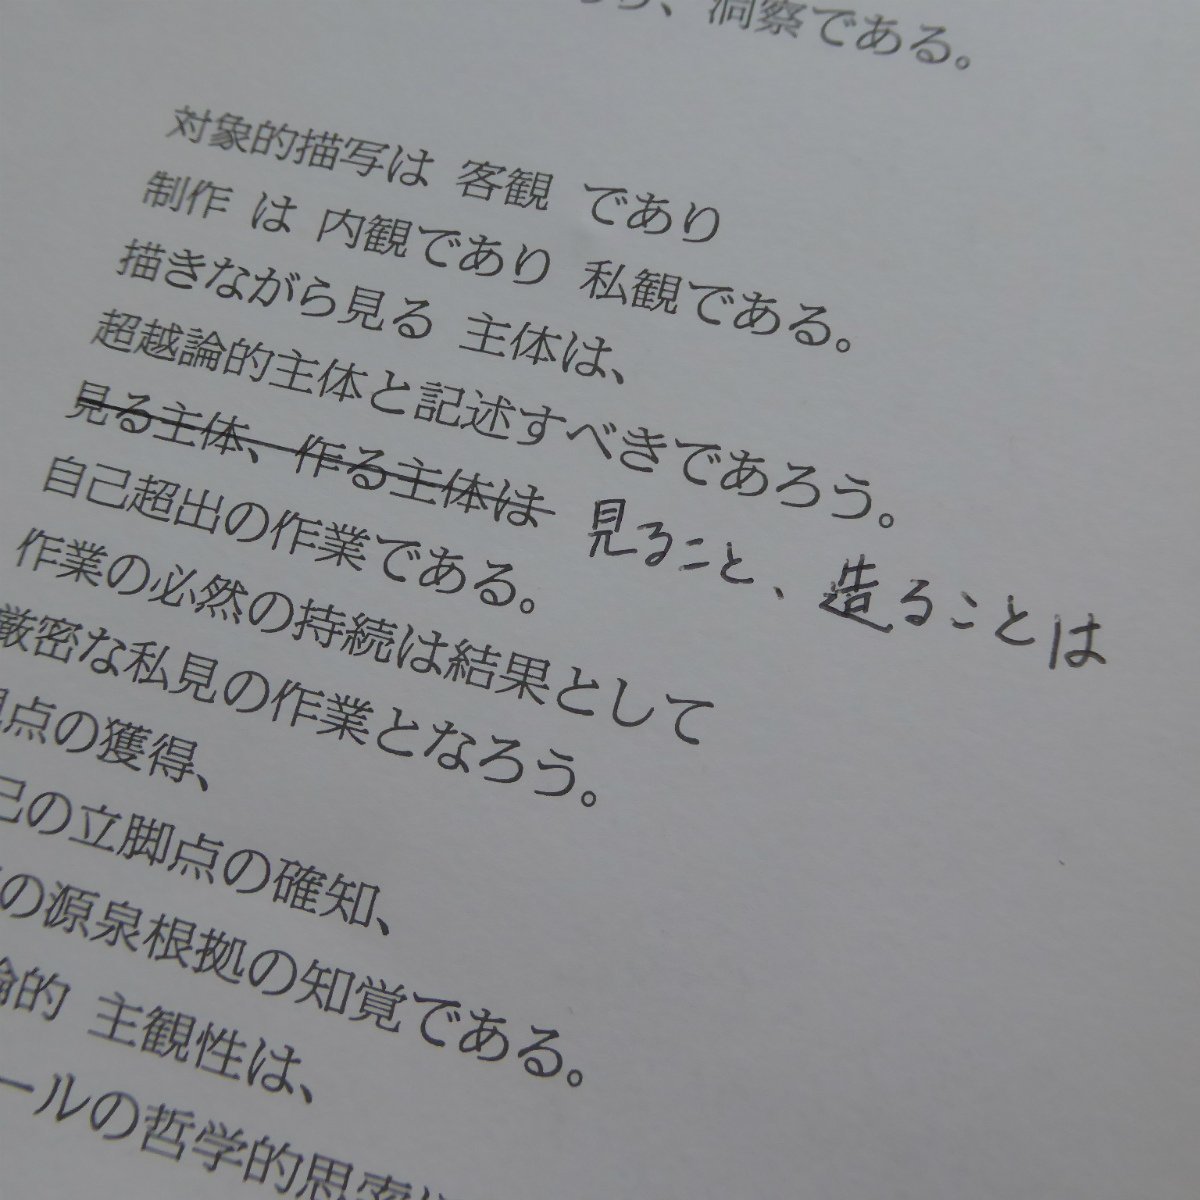 、洞察である。
対象的描写は 客観 であり
制作 は 内観であり 私観である。
描きながら見る 主体は、
超越論的主体と記述すべきであろう。
見る主体、作る主体は 見ること、造ることは
自己超出の作業である。
作業の必然の持続は結果として
厳密な私見の作業となろう。
点の獲得、
己の立脚点の確知、
の源泉根拠の知覚である。
論的 主観性は、
ールの哲学的思索